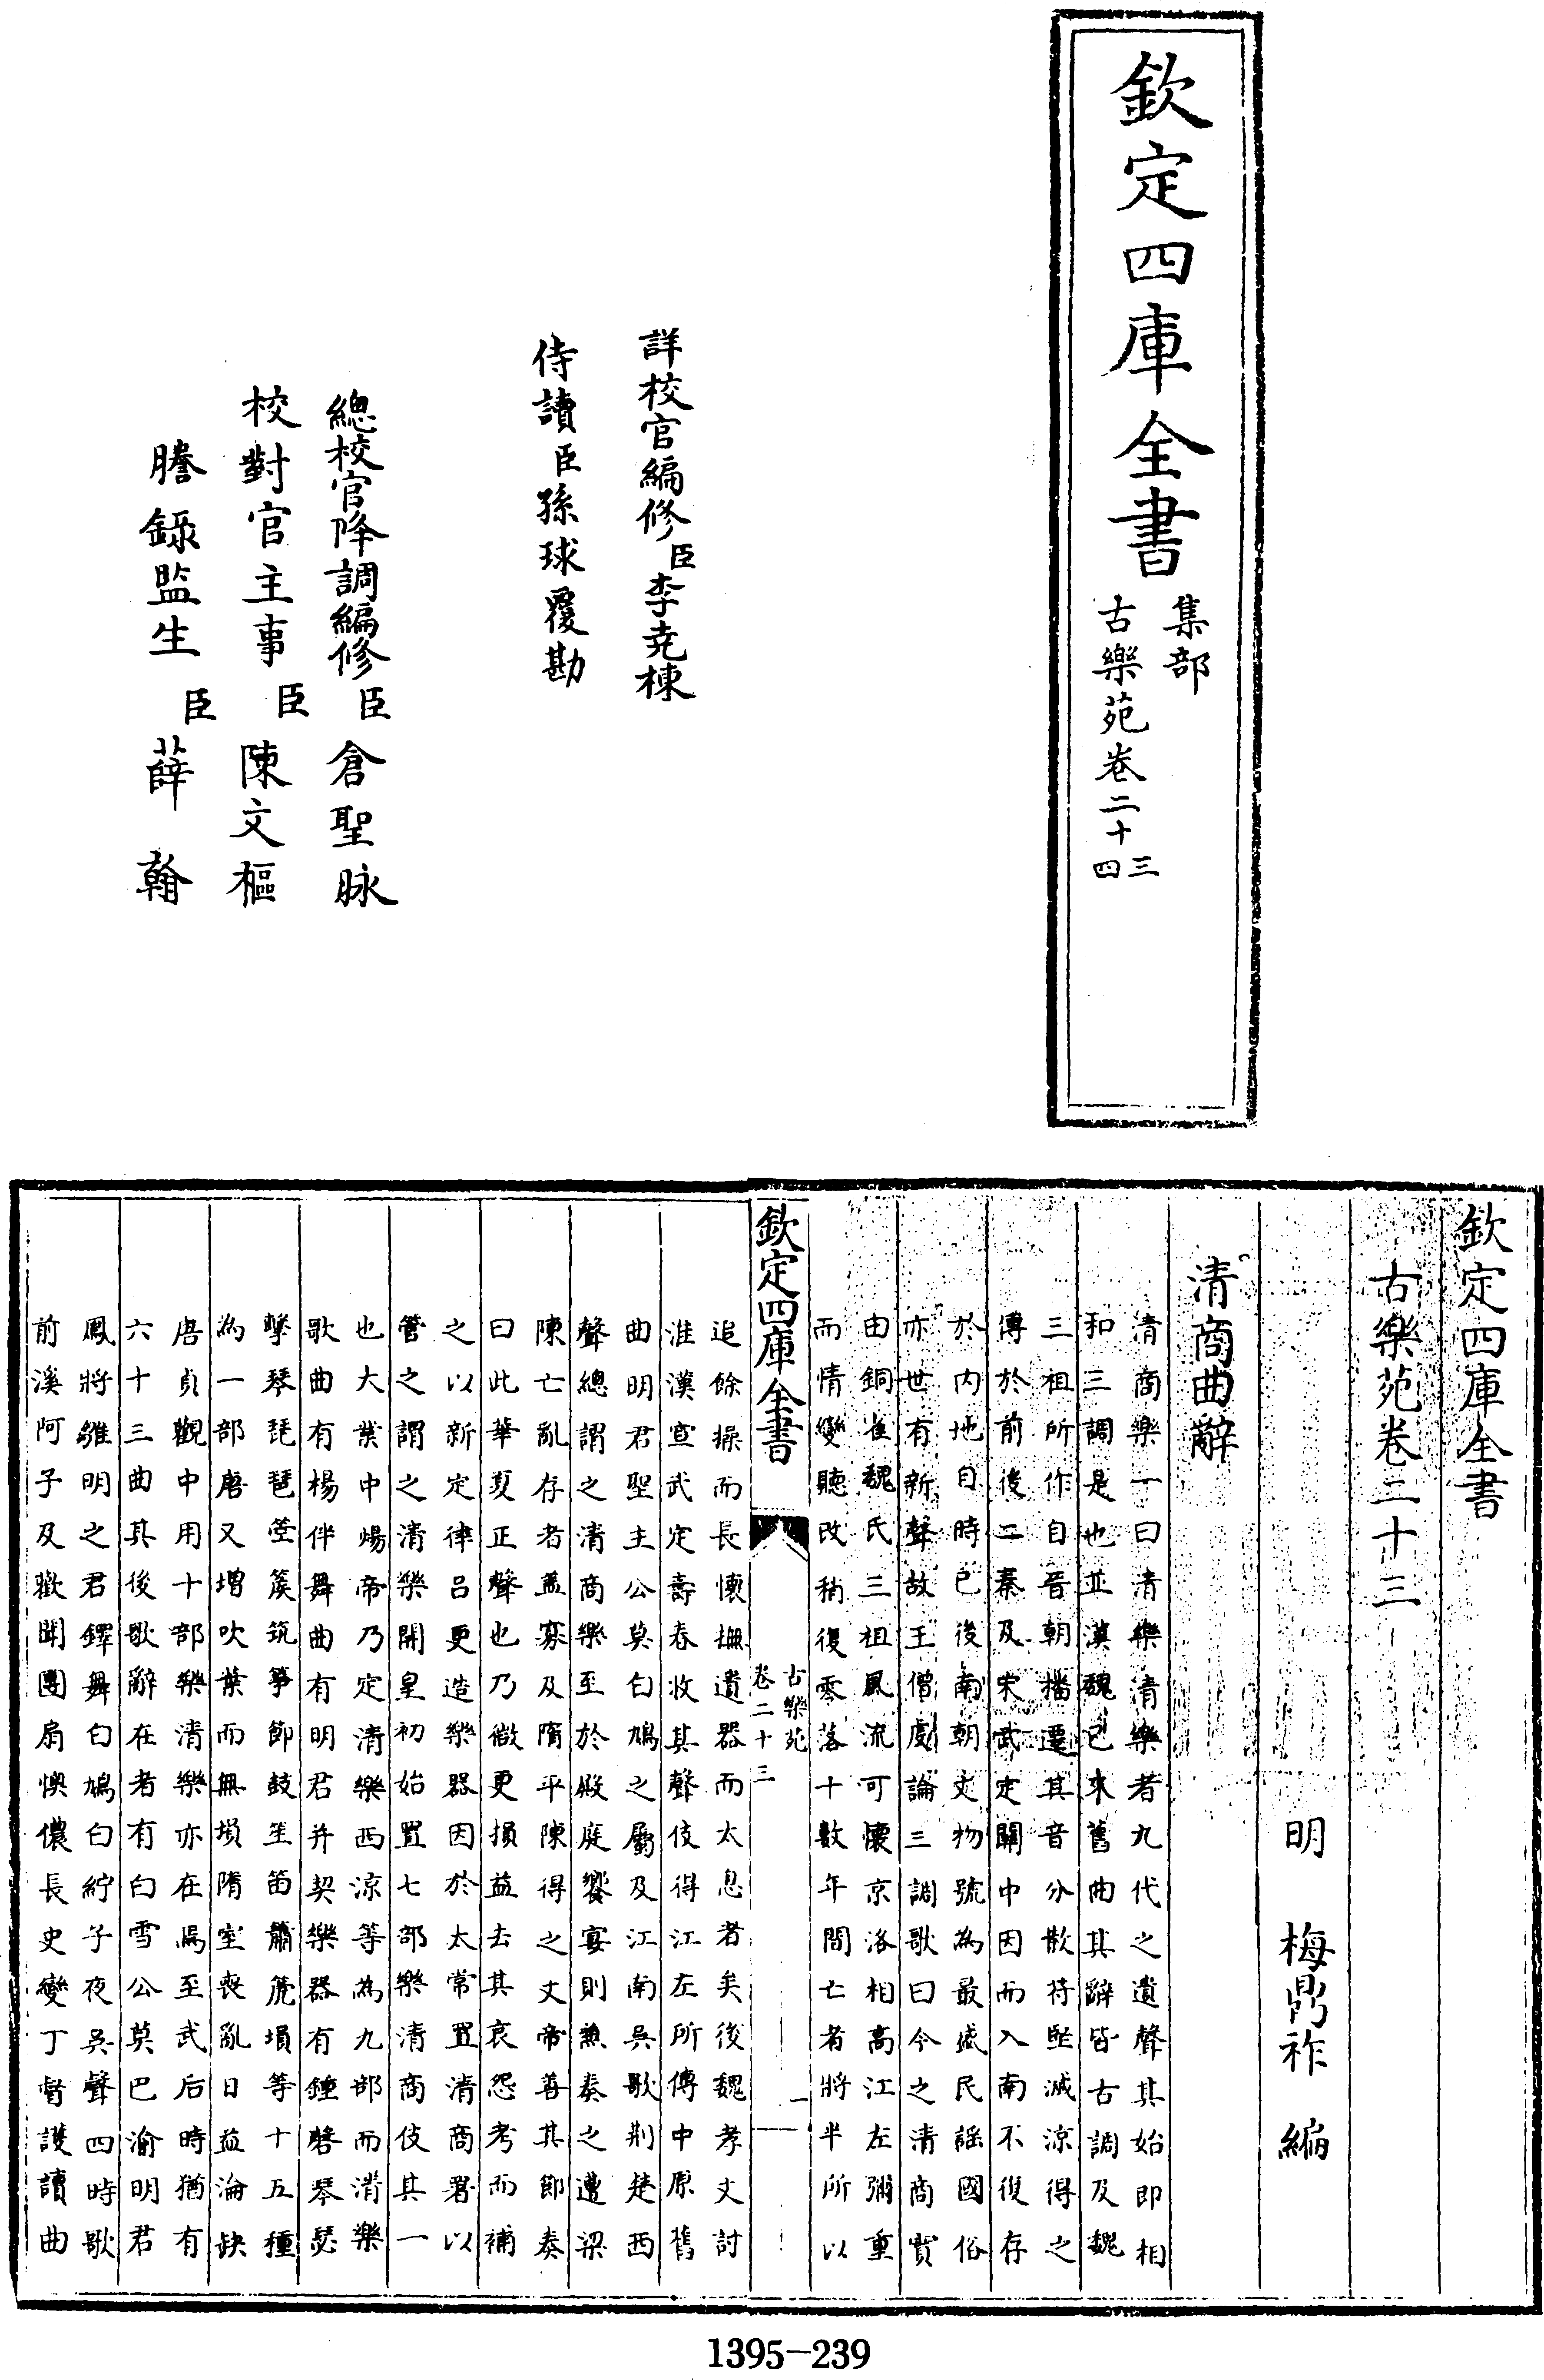 欽定四庫全書
集部
古樂苑卷二十三
四
詳校官編修臣李堯棟
侍讀臣孫球覆勘
總校官降調編修臣倉聖脉
校對官主事臣陳文樞
謄錄監生臣薛翰
欽定四庫全書
古樂苑卷二十三
明 梅鼎祚 編
清商曲辭
清商樂一曰清樂清樂者九代之遺聲其始即相
和三調是也並漢魏已來舊曲其辭皆古調及魏
三祖所作自晉朝播遷其音分散苻堅滅涼得之
傳於前後二秦及宋武定關中因而入南不復存
於內地自時已後南朝文物號為最盛民謡國俗
亦世有新聲故王僧虔論三調歌曰今之清商實
由銅雀魏氏三祖風流可懷京洛相高江左彌重
而情變聽改稍復零落十數年間亡者將半所以
欽定四庫全書
古樂苑
卷二十三
一
追餘操而長懷撫遺器而太息者矣後魏孝文討
淮漢宣武定壽春收其聲伎得江左所傳中原舊
曲明君聖主公莫白鳩之屬及江南吳歌荆楚西
聲總謂之清商樂至於殿庭饗宴則兼奏之遭梁
陳亡亂存者蓋寡及隋平陳得之文帝善其節奏
曰此華夏正聲也乃微更損益去其哀怨考而補
之以新定律呂更造樂器因於太常置清商署以
管之謂之清樂開皇初始置七部樂清商伎其一
也大業中煬帝乃定清樂西涼等為九部而清樂
歌曲有楊伴舞曲有明君并契樂器有鍾磬琴瑟
擊琴琵琶箜篌筑箏節鼓笙笛簫篪塤等十五種
為一部唐又增吹葉而無塤隋室喪亂日益淪缺
唐貞觀中用十部樂清樂亦在焉至武后時猶有
六十三曲其後歌辭在者有白雪公莫巴渝明君
鳳將雛明之君鐸舞白鳩白紵子夜吳聲四時歌
前溪阿子及歡聞團扇懊儂長史變丁督護讀曲
1395-239